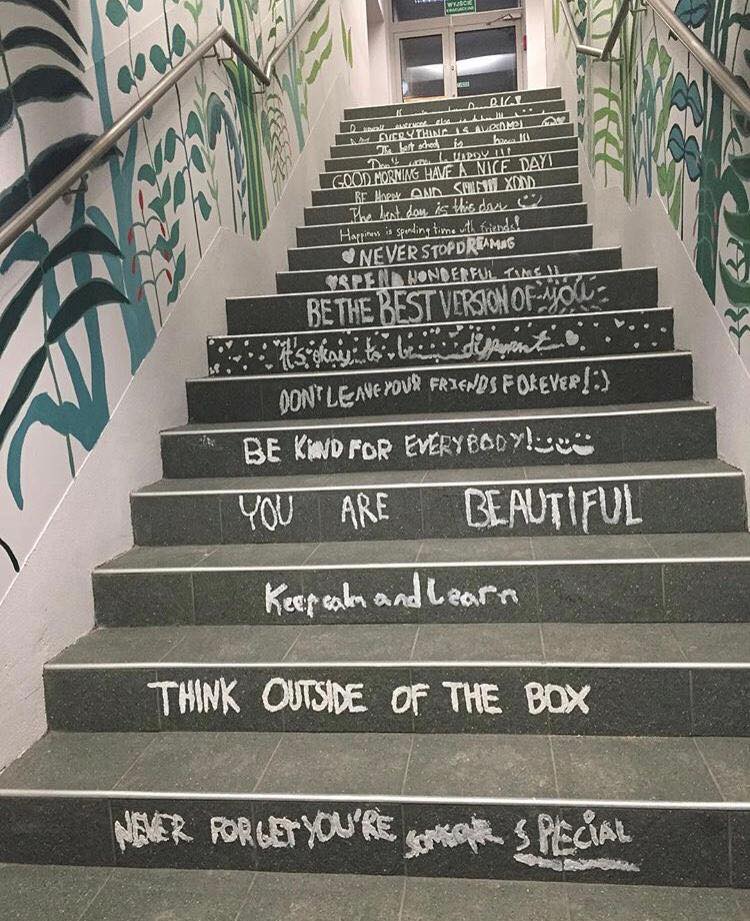 WYJŚCIE
EWAKUACYJNE
BIG!
everyone else
EVERYTHING IS AWESOME!
The best school is
Don't HAPPY!!!
GOOD MORNING HAVE A NICE DAY!
BE HAPPY AND SMILE!!! XDDD
The best day is this day
Happiness is spending time with friends!
NEVER STOP DREAMING
SPEND WONDERFUL TIME!!
BE THE BEST VERSION OF you
it's okay to be different
DON'T LEAVE YOUR FRIENDS FOREVER! :)
BE KIND FOR EVERYBODY!
YOU ARE BEAUTIFUL
Keep calm and Learn
THINK OUTSIDE OF THE BOX
NEVER FORGET YOU'RE SOMEONE SPECIAL